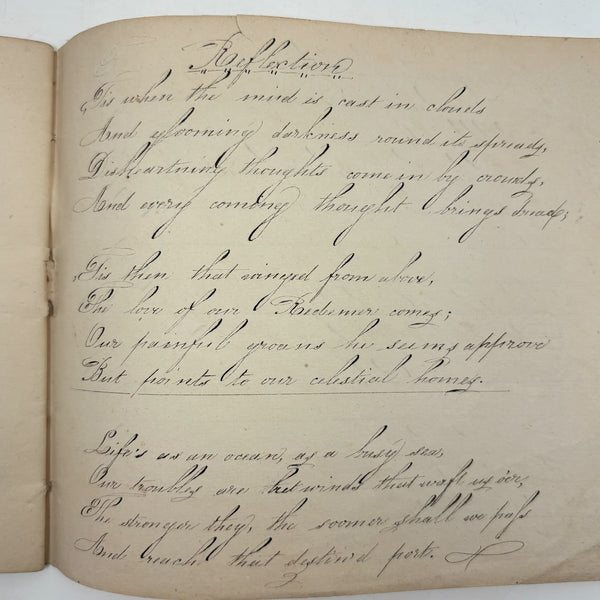 Reflection
'Tis when the mind is cast in clouds
And glooming darkness round its spreads,
Disheartning thoughts come in by crowds,
And every coming thought brings dread;
'Tis then that winged from above,
The love of our Redemer comes;
Our painful groans he seems approve
But points to our celestial homes.
Life's as an ocean, as a busy sea,
Our troubles are but winds that waft us o'er,
The stronger they, the sooner shall we pass
And reach that destin'd port.